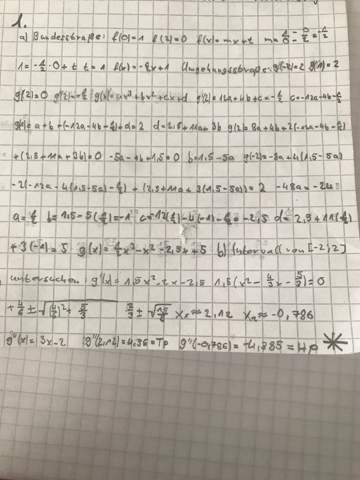 1.
a) Bundesstraße: f(0)=1 f(2)=0 f(x)=mx+t m=
1=-1/2·0+t t=1 f(x)=-1/2x+1 Umgehungsstraße: g(-2)=2 g(1)=2
g(2)=0 g'(2)=-1/2 g(x)=ax³+bx²+cx+d g'(2)=12a+4b+c=-1/2 c=-12a-4b-1/2
g(1)=a+b+(-12a-4b-1/2)+d=2 d=2,5+11a+3b g(2)=8a+4b+2(-12a-4b-1/2)
+(2,5+11a+3b)=0 -5a-b+1,5=0 b=1,5-5a g(-2)=-8a+4(1,5-5a)
-2(-12a-4(1,5-5a)-1/2)+(2,5+11a+3(1,5-5a))=2 -48a=-24
a=1/2 b=1,5-5(1/2)=-1 c=-12(1/2)-4(-1)-1/2=-2,5 d=2,5+11(1/2)
+3(-1)=5 g(x)=1/2x³-x²-2,5x+5 b) Intervall von [-2;2]
untersuchen g'(x)=1,5x²-2x-2,5 1,5(x²-4/3x-5/3)=0
+4/6±√(4/6)²+5/3 2/3±√19/9 x₁≈2,12 x₂≈-0,786
g''(x)=3x-2 g''(2,12)=4,36=TP g''(-0,786)=-4,385=HP